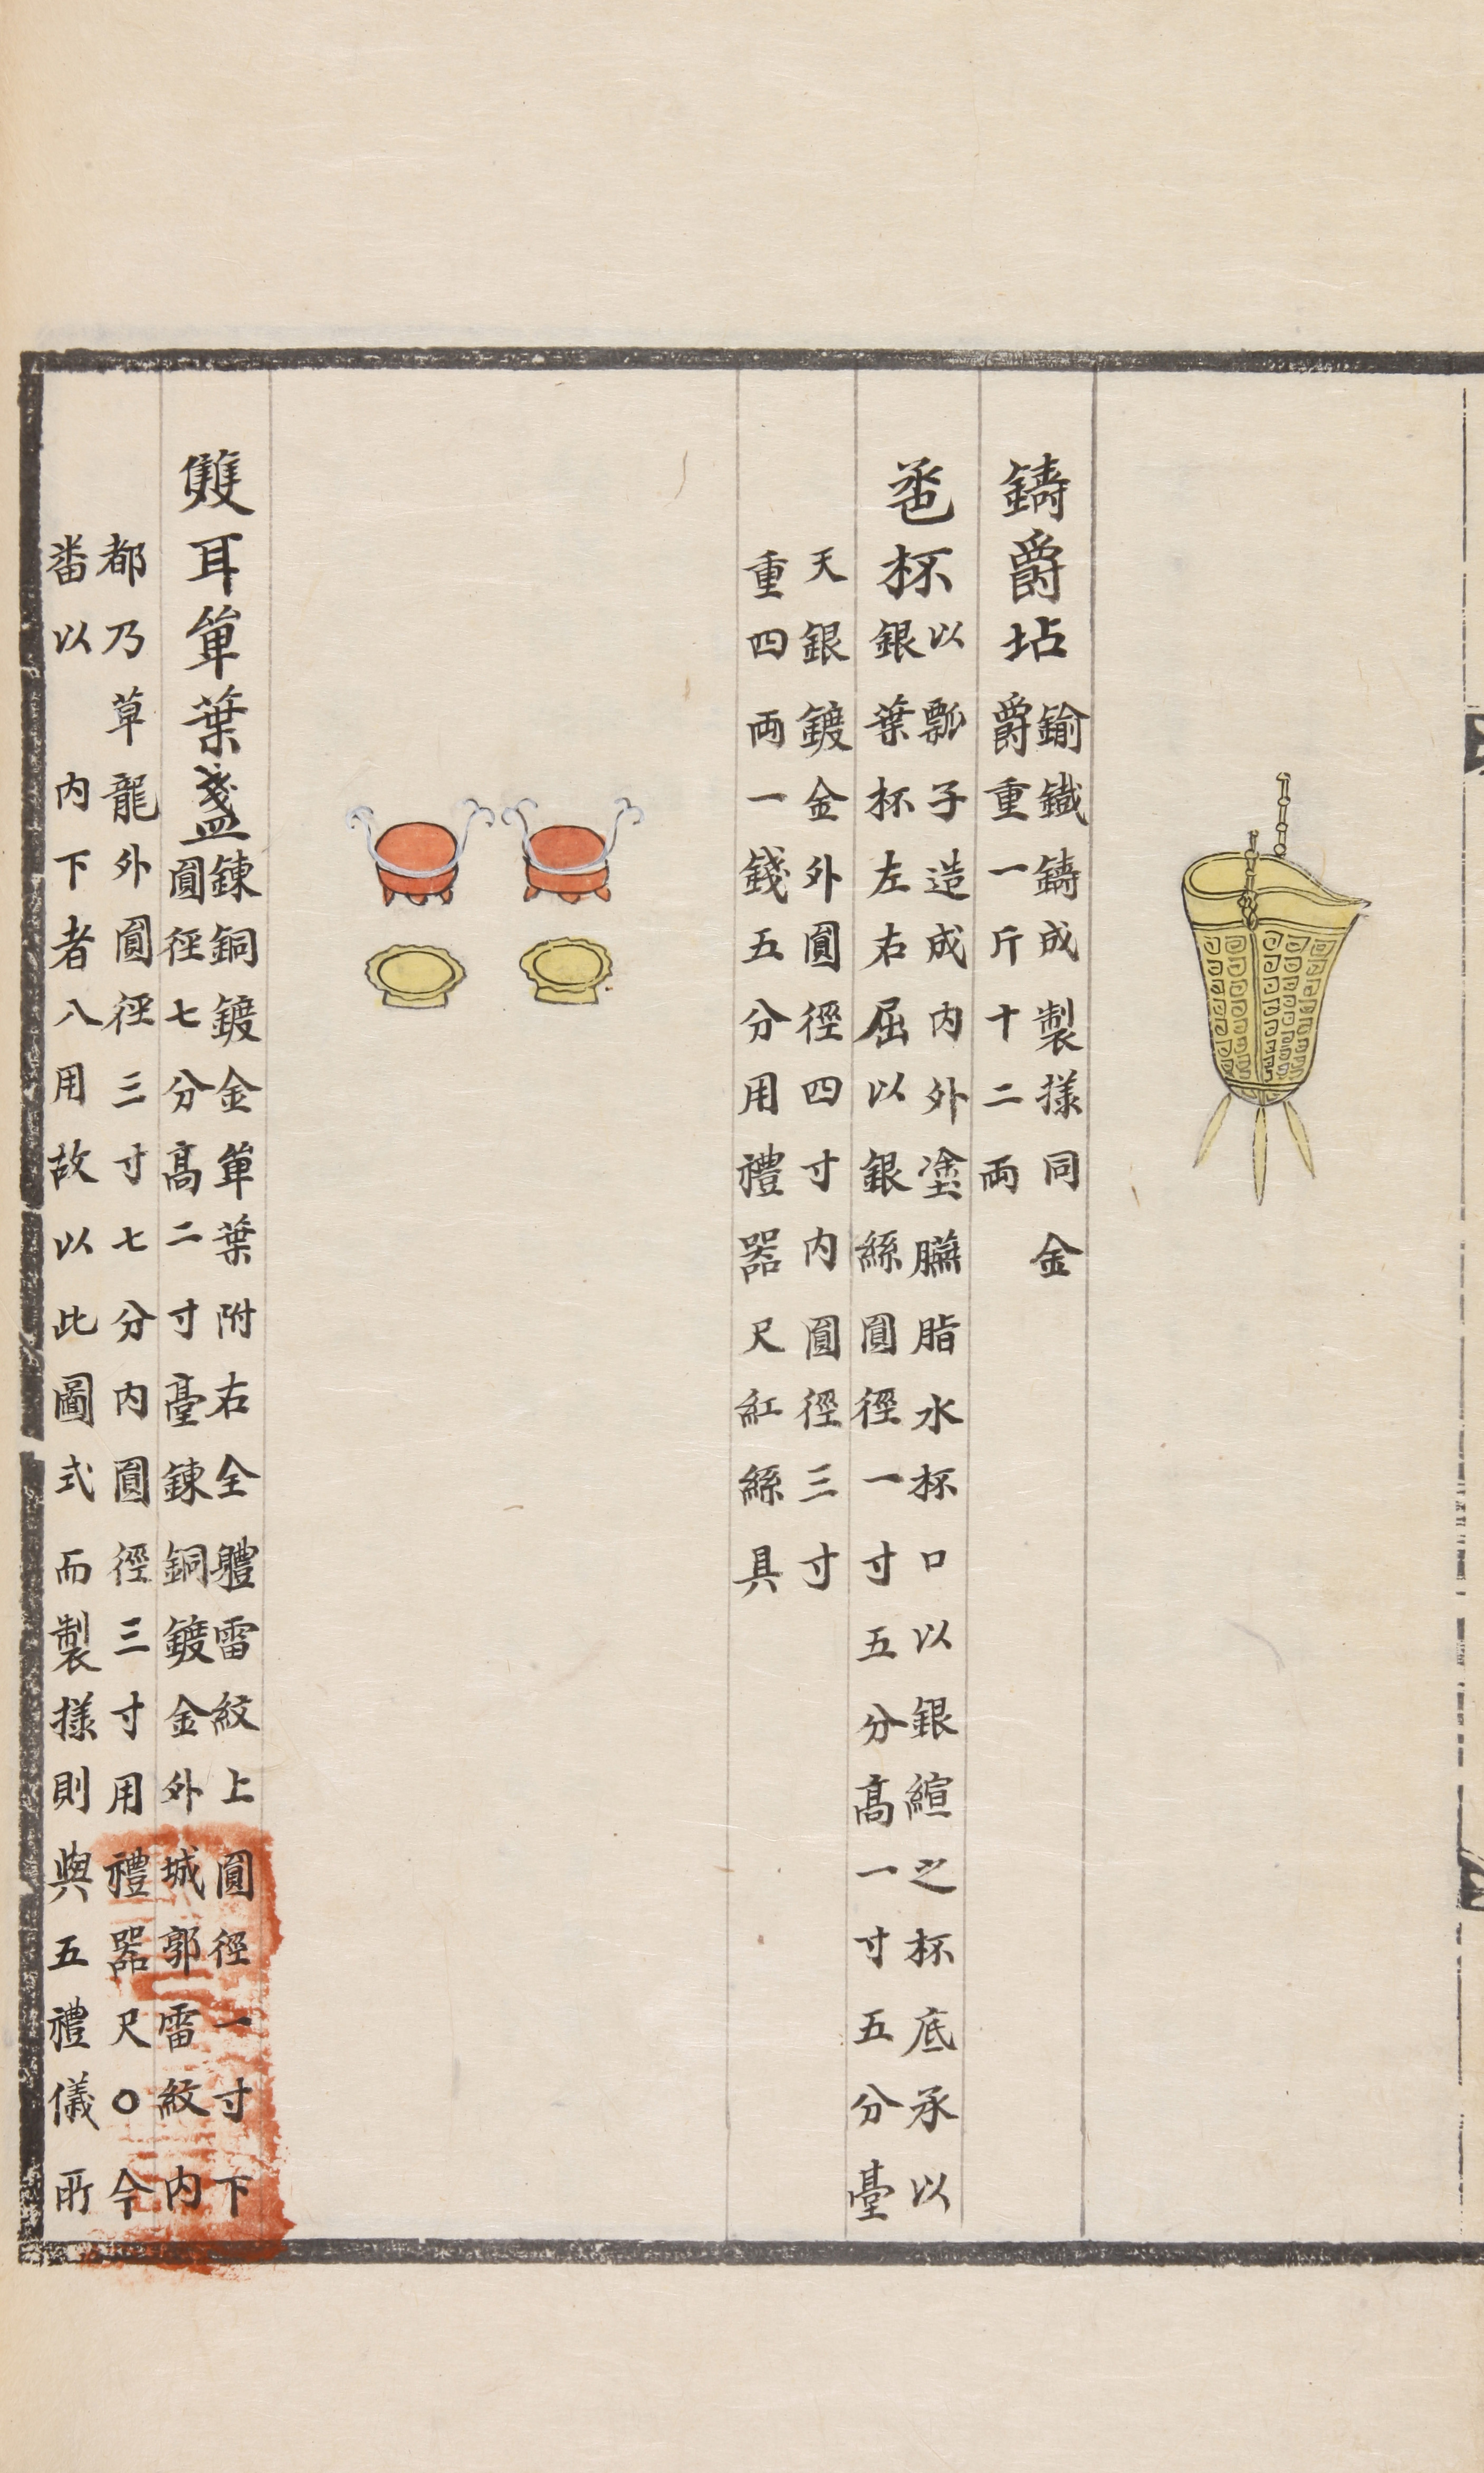 鑄爵坫
鍮鐵鑄成製樣同金
爵重一斤十二兩
巹杯
以瓢子造成内外塗臙脂水杯口以銀縇之杯底承以
銀葉杯左右屈以銀絲圓徑一寸五分高一寸五分臺
天銀鍍金外圓徑四寸内圓徑三寸
重四両一錢五分用禮器尺紅絲具
雙耳單葉盞
鍊銅鍍金單葉附右全體雷紋上圓徑一寸下
圓徑七分高二寸臺鍊銅鍍金外城郭雷紋内
都乃草龍外圓徑三寸七分内圓徑三寸用禮器尺○今
番以 内下者八用故以此圖式而製樣則與五禮儀所